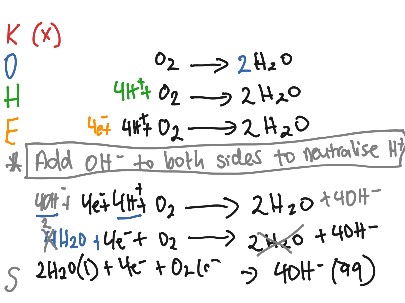 K (x)
O O₂ → 2H₂O
H 4H⁺+ O₂ → 2H₂O
E 4e⁻+ 4H⁺+ O₂ → 2H₂O
* Add OH⁻ to both sides to neutralise H⁺
4OH⁻+ 4e⁻+ 4H⁺+ O₂ → 2H₂O + 4OH⁻
2 4H₂O + 4e⁻ + O₂ → 2H₂O + 4OH⁻
S 2H₂O(l) + 4e⁻ + O₂(e⁻ → 4OH⁻ (aq)